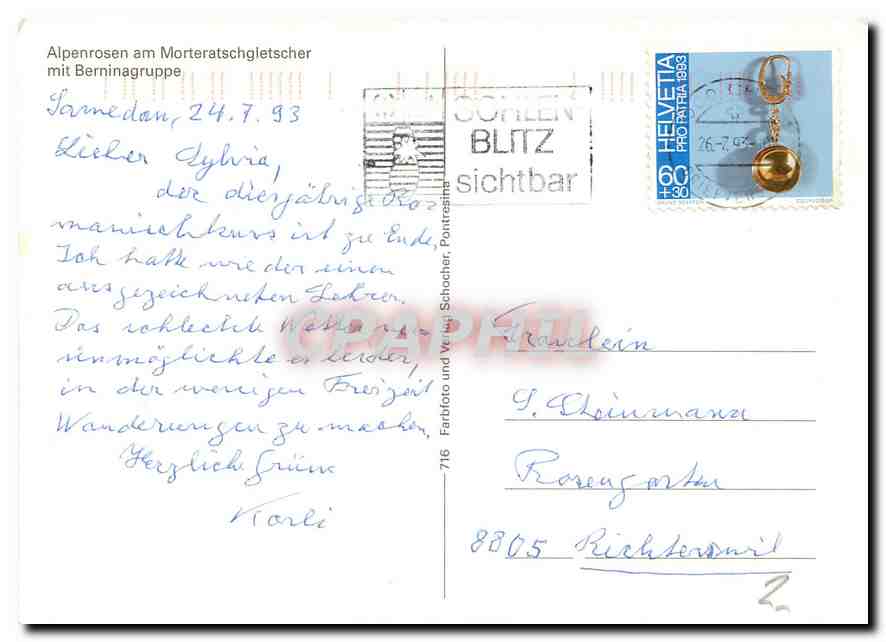 Alpenrosen am Morteratschgletscher
mit Berninagruppe
Samedan, 24.7.93
Lieber Sylvia,
der diesjährige Ro-
manischkurs ist zu Ende.
Ich hatte wieder einen
ausgezeichneten Lehrer.
Das schlechte Wetter
unmöglichte es leider,
in der wenigen Freizeit
Wanderungen zu machen.
Herzliche Grüsse
Karli
716 Farbfoto und Verlag Schocher, Pontresina
SOHLEN
BLITZ
sichtbar
HELVETIA
PRO PATRIA 1993
60
+30
26.-7.93
CPAPHIL
Fräulein
S. Steinmann
Rosengarten
8805 Richterswil
2.-